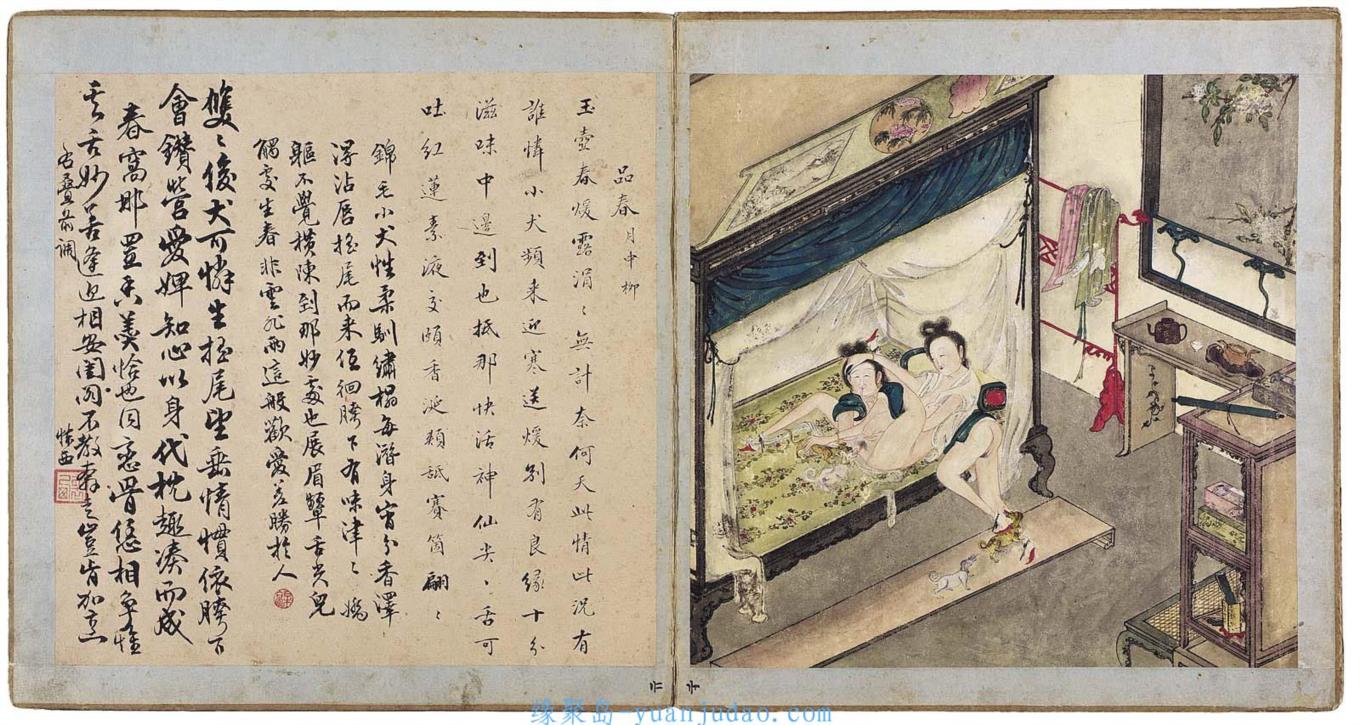 品春月中柳
玉壺春煖露涓〻無計奈何天此情此況有
誰憐小犬頻来迎寒送煖別有良緣十分
滋味中邊到也抵那快活神仙尖〻舌可
吐紅蓮素液交頤香涎頰舐賽箇翩〻
錦毛小犬性柔馴繡榻每游身宵分香澤
浮沾唇搖尾而来低徊胯下有味津〻嬌
軀不覺橫陳到那妙處也展眉顰舌尖兒
觸處生春非雲非雨這般歡愛差勝於人
雙〻後犬可憐生搖尾望垂情慣依胯下
會鑽營愛婢知心以身代枕趣湊而成
春窩那置羹恰也因骨恁相爭惟
其舌妙善逢迎相安閨閤不教豈肯加烹
右疊前調
缘聚岛-yuanjudao.com